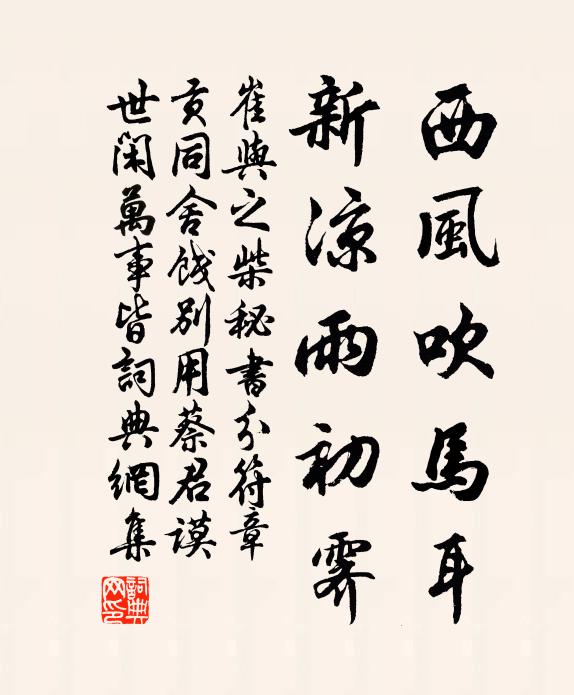 西風吹馬耳
新涼雨初霽
崔與之柴秘書分符章
貢同舍餞別用蔡君謨
世閑萬事皆詞典網集
詞典
网印